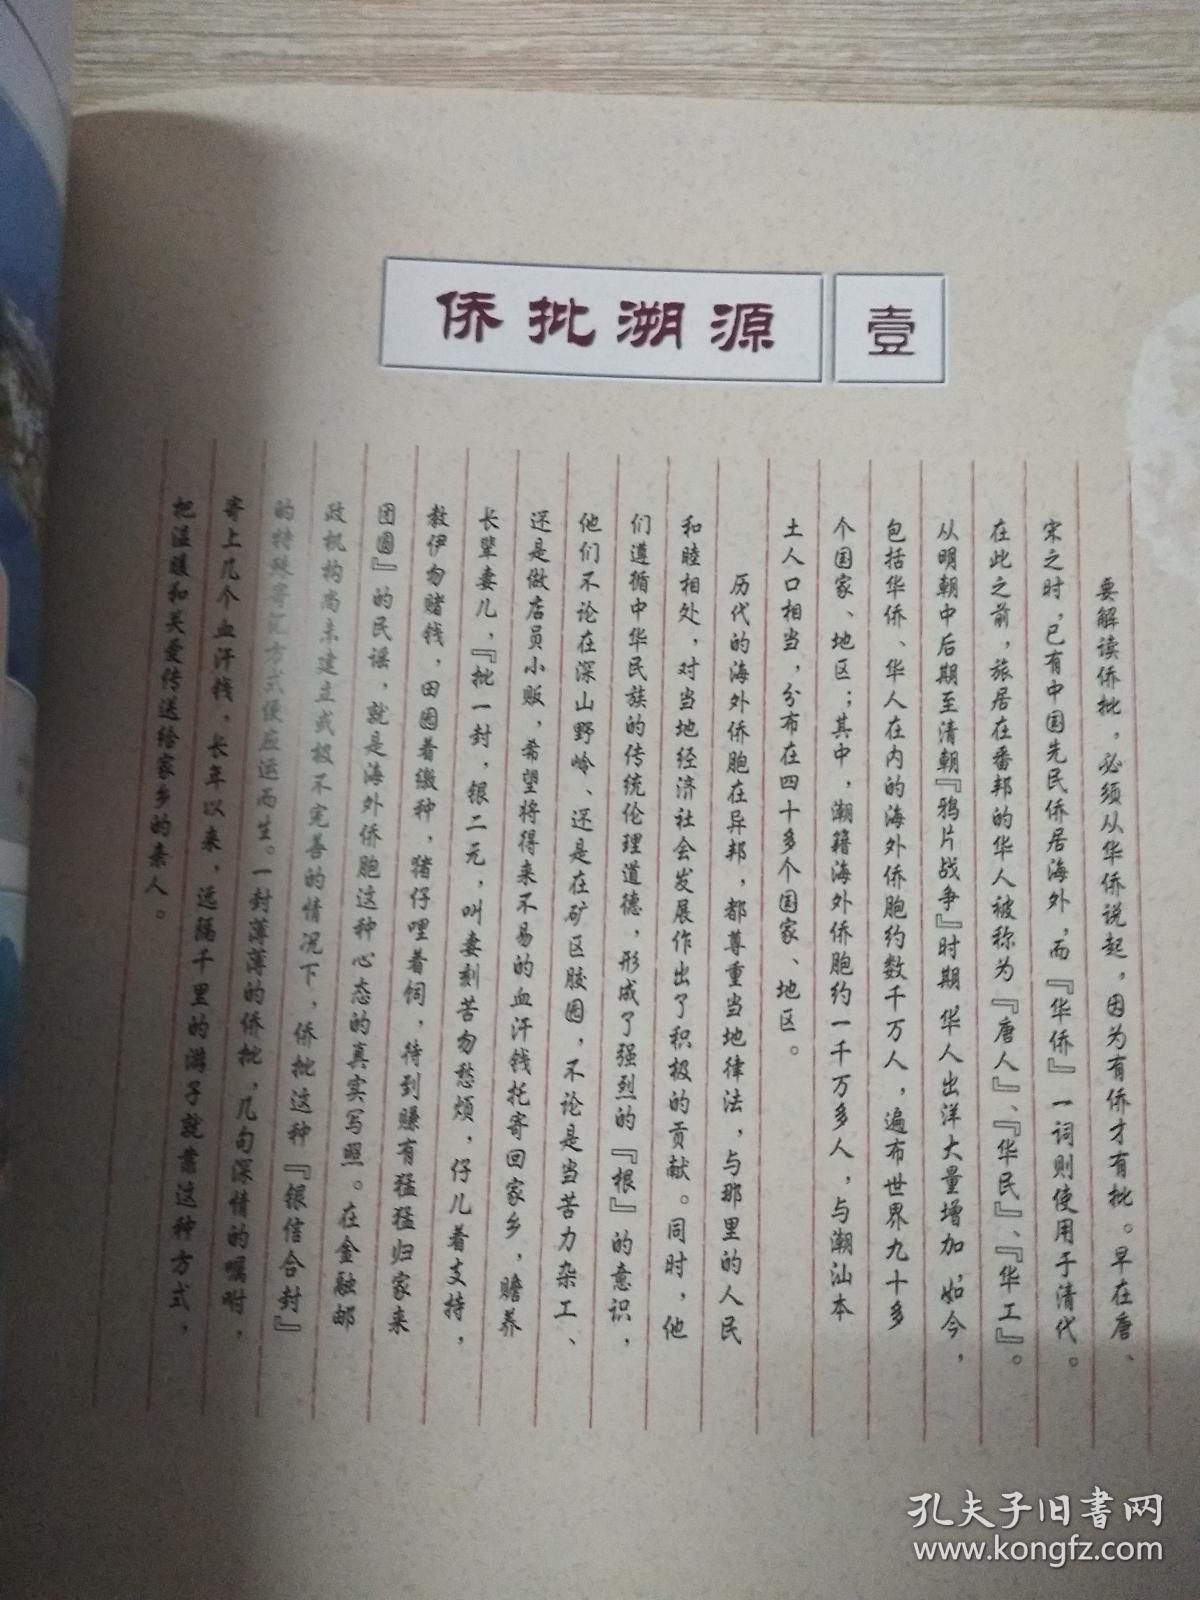 壹
侨批溯源
要解读侨批，必须从华侨说起，因为有侨才有批。早在唐、
宋之时，已有中国先民侨居海外，而『华侨』一词则使用于清代。
在此之前，旅居在番邦的华人被称为『唐人』、『华民』、『华工』。
从明朝中后期至清朝『鸦片战争』时期，华人出洋大量增加，如今，
包括华侨、华人在内的海外侨胞约数千万人，遍布世界九十多
个国家、地区；其中，潮籍海外侨胞约一千万多人，与潮汕本
土人口相当，分布在四十多个国家、地区。
历代的海外侨胞在异邦，都尊重当地律法，与那里的人民
和睦相处，对当地经济社会发展作出了积极的贡献。同时，他
们遵循中华民族的传统伦理道德，形成了强烈的『根』的意识，
他们不论在深山野岭、还是在矿区胶园，不论是当苦力杂工、
还是做店员小贩，希望将得来不易的血汗钱托寄回家乡，赡养
长辈妻儿，『批一封，银二元，叫妻刻苦勿愁烦，仔儿着支持，
教伊勿赌钱，田园着缴种，猪仔哩着饲，待到赚有猛猛归家来
团圆』的民谣，就是海外侨胞这种心态的真实写照。在金融邮
政机构尚未建立或极不完善的情况下，侨批这种『银信合封』
的特殊寄汇方式便应运而生。一封薄薄的侨批，几句深情的嘱咐，
寄上几个血汗钱，长年以来，远隔千里的游子就靠这种方式，
把温暖和关爱传送给家乡的亲人。
孔夫子旧书网
www.kongfz.com